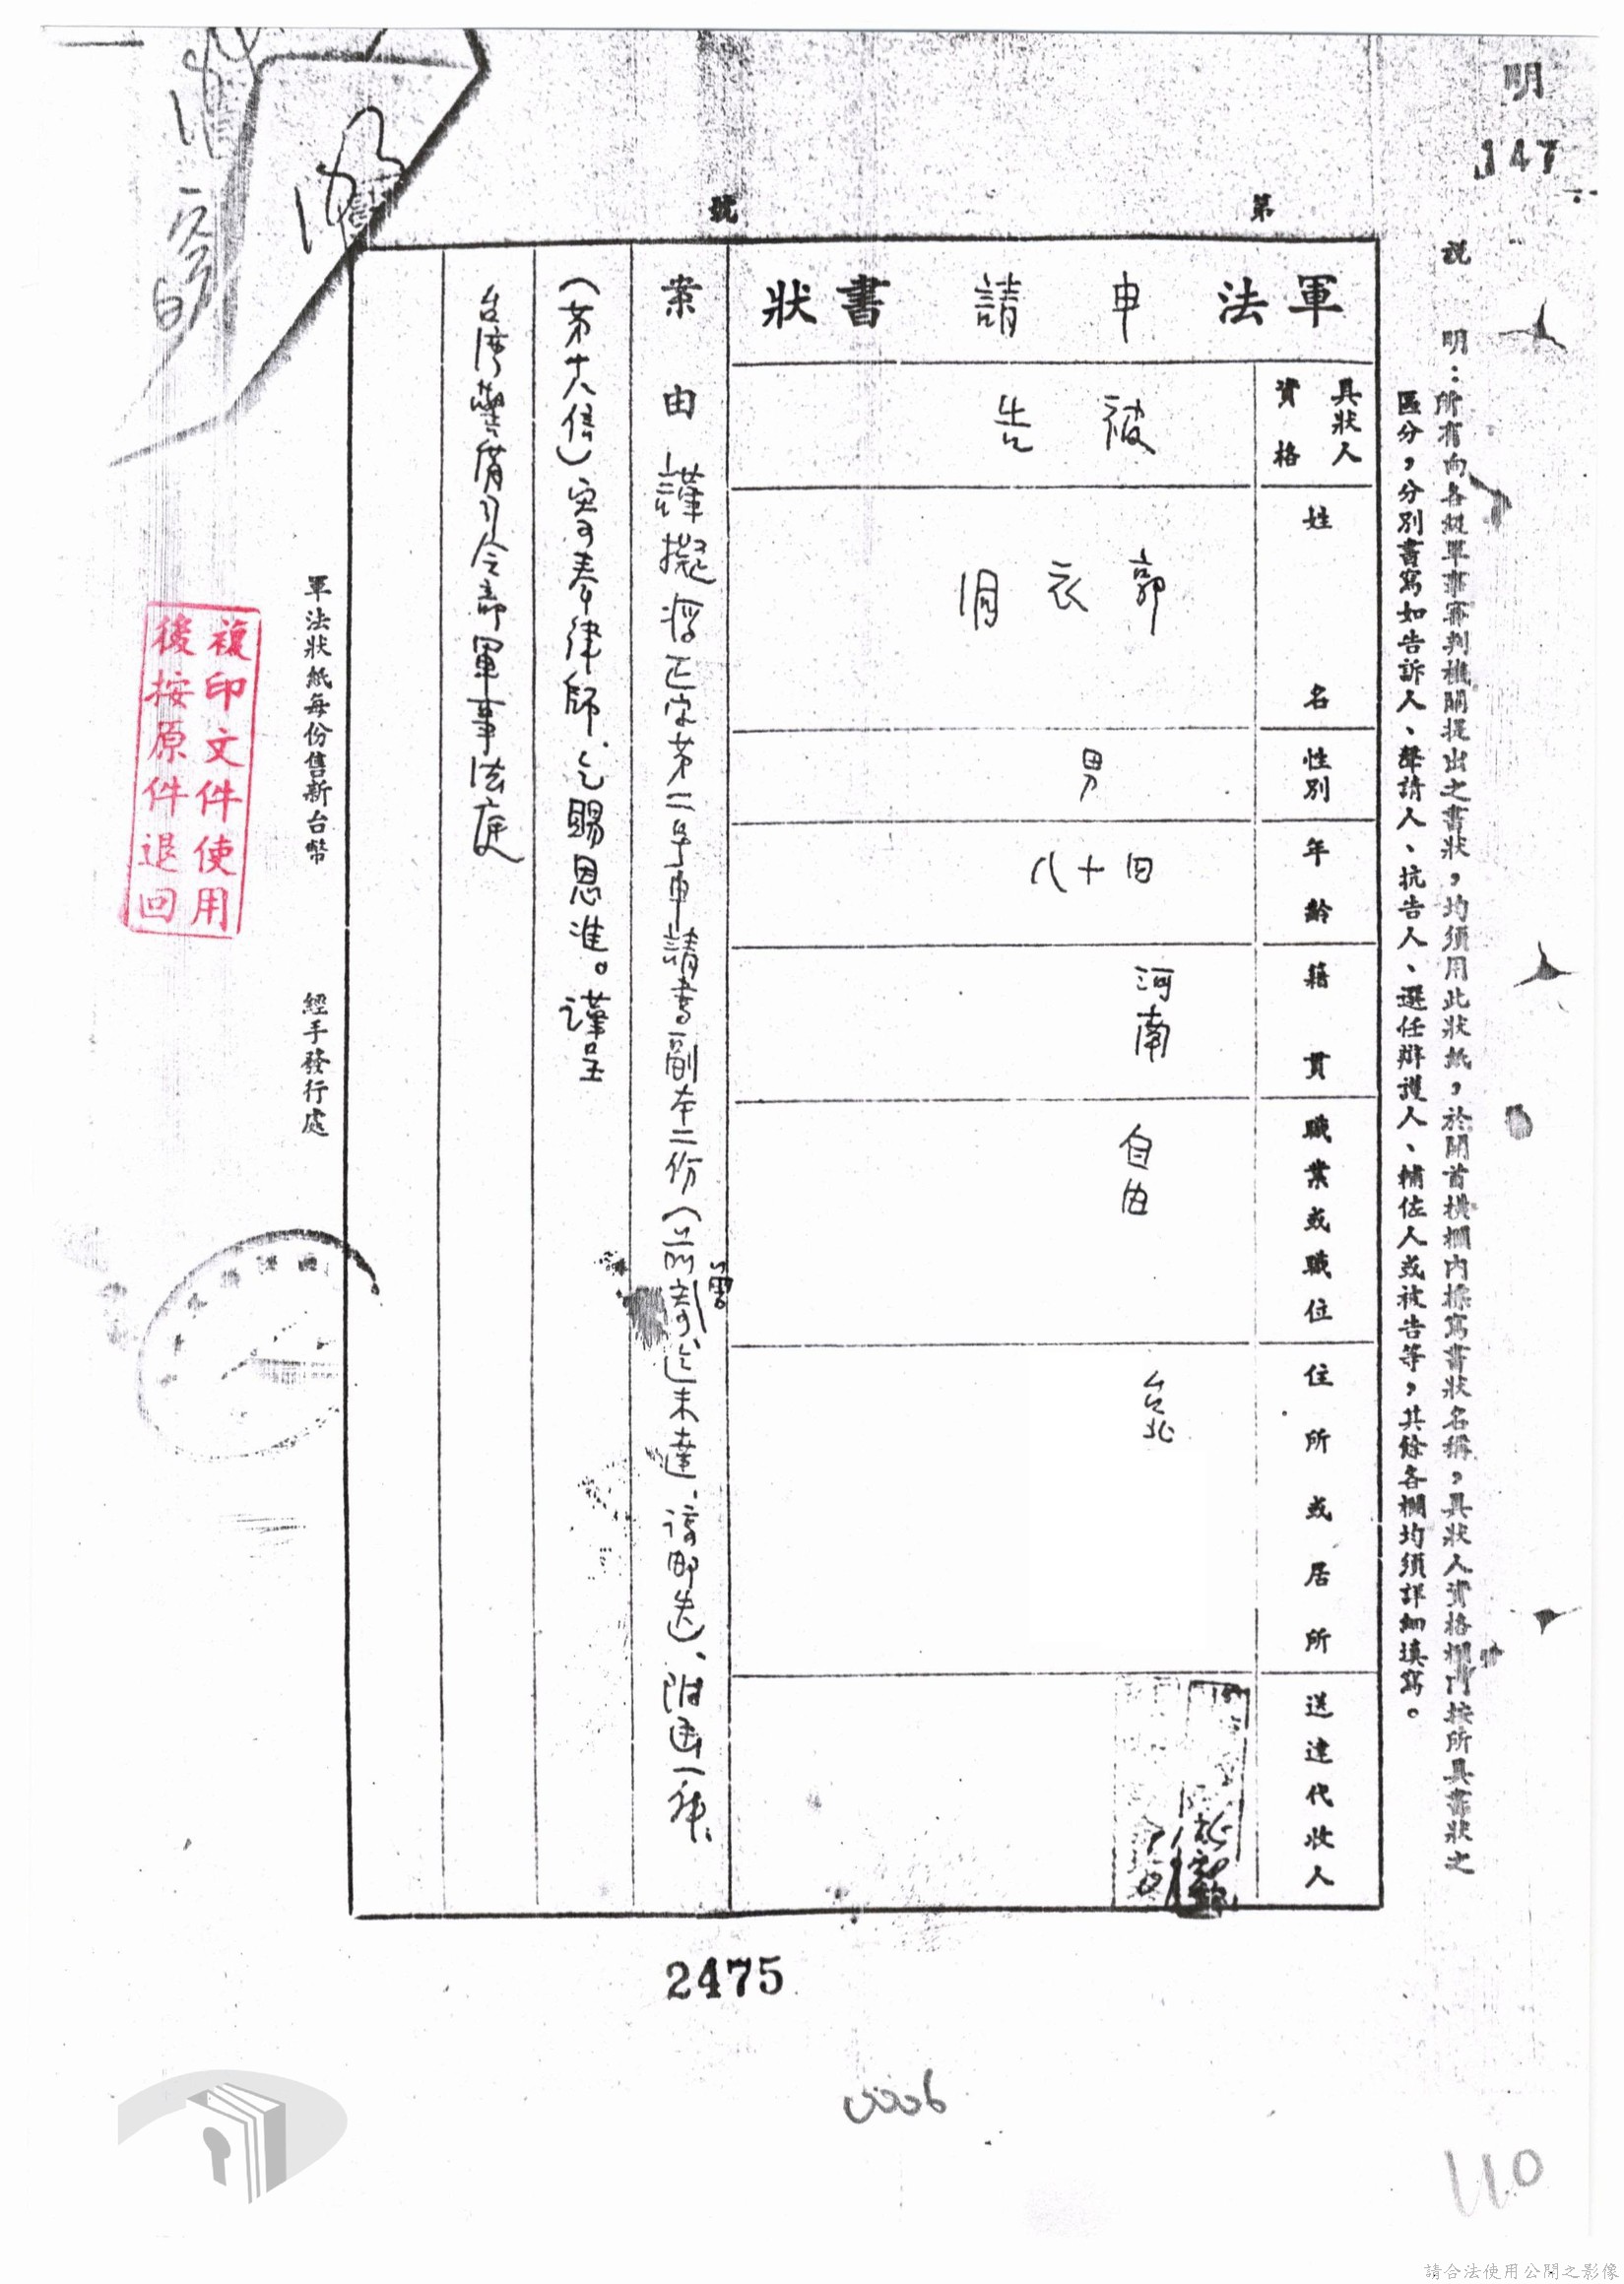 明
147
說　明：所有向各級軍事審判機關提出之書狀，均須用此狀紙，於開首橫欄內標寫書狀名稱，具狀人資格欄內按所具書狀之
區分，分別書寫如告訴人、聲請人、抗告人、選任辯護人、輔佐人或被告等，其餘各欄均須詳細填寫。
第　號
軍法申請書狀
具狀人資格
被告
姓名
郭衣洞
性別
男
年齡
四十八
籍貫
河南
職業或職位
自由
住所或居所
台北
送達代收人
案由
謹擬將正字第二號申請書副本二份（前曾寄、迄未達、諒郵失）、附函一件、
（第十八信）寄奉律師、乞賜恩准。謹呈
台灣警備司令部軍事法庭
軍法狀紙每份售新台幣　經手發行處
複印文件使用
後按原件退回
2475
110
請合法使用公開之影像